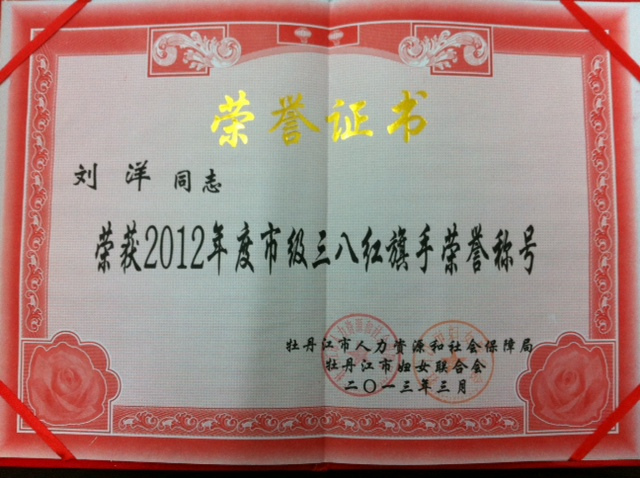 荣誉证书
刘洋同志
荣获2012年度市级三八红旗手荣誉称号
牡丹江市人力资源和社会保障局
牡丹江市妇女联合会
二〇一三年三月